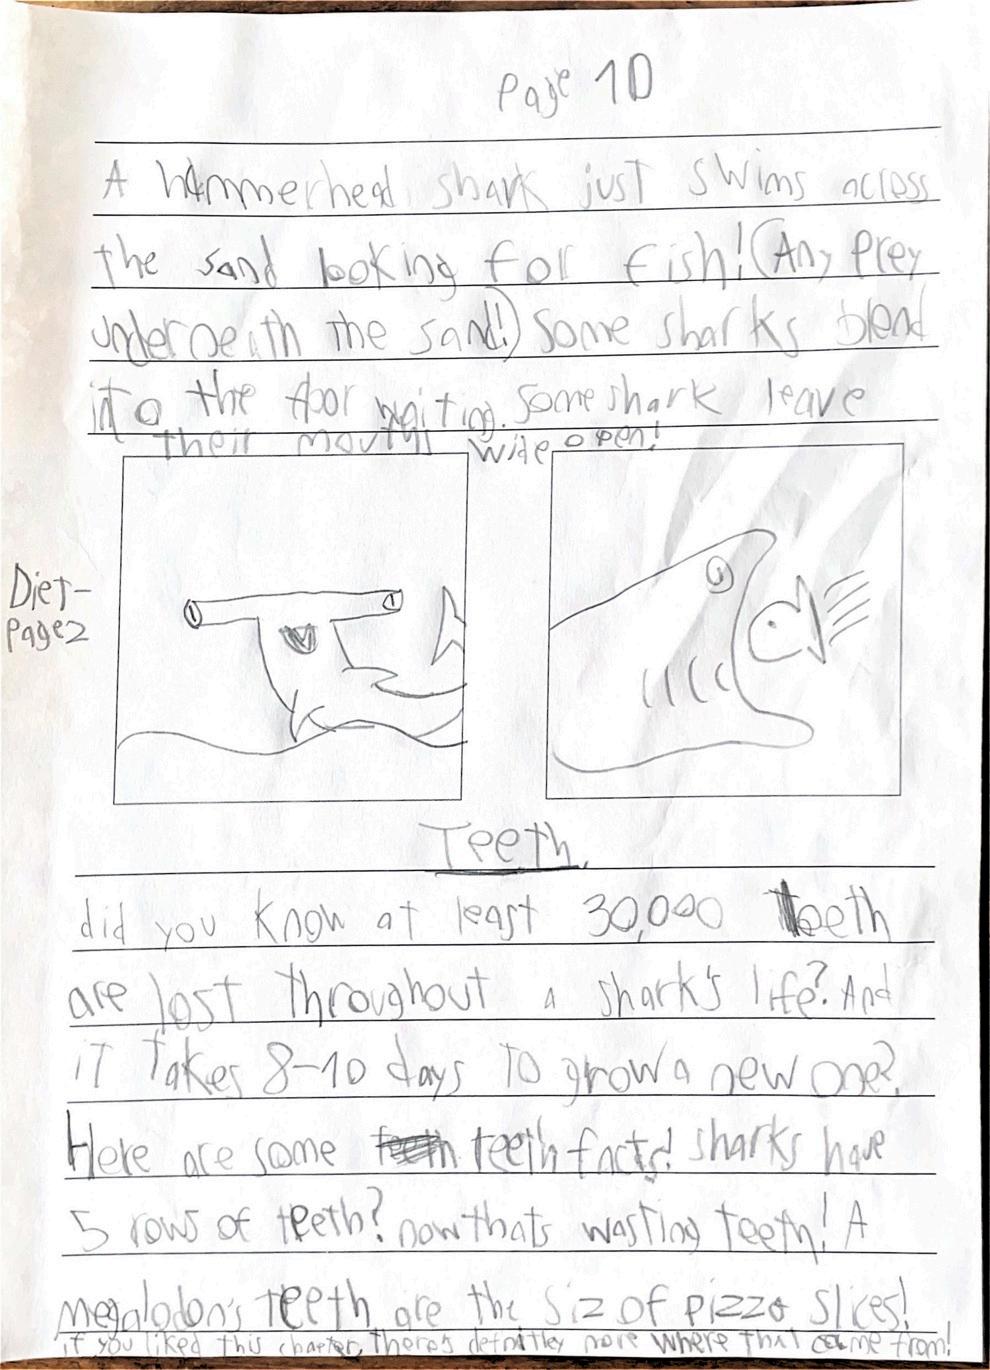 Page 10
A hammerhead shark just swims across
the sand looking for fish! (Any Prey
underneath the sand!) Some sharks blend
into the floor waiting. Some shark leave
their mouths wide open!
Diet-
page 2
Teeth
did you know at least 30,000 teeth
are lost throughout a shark's life? And
it takes 8-10 days to grow a new one?
Here are some teeth facts! Sharks have
5 rows of teeth? now thats wasting teeth! A
megalodon's teeth are the siz of pizza slices!
if you liked this chapter, there's definitley more where that came from!